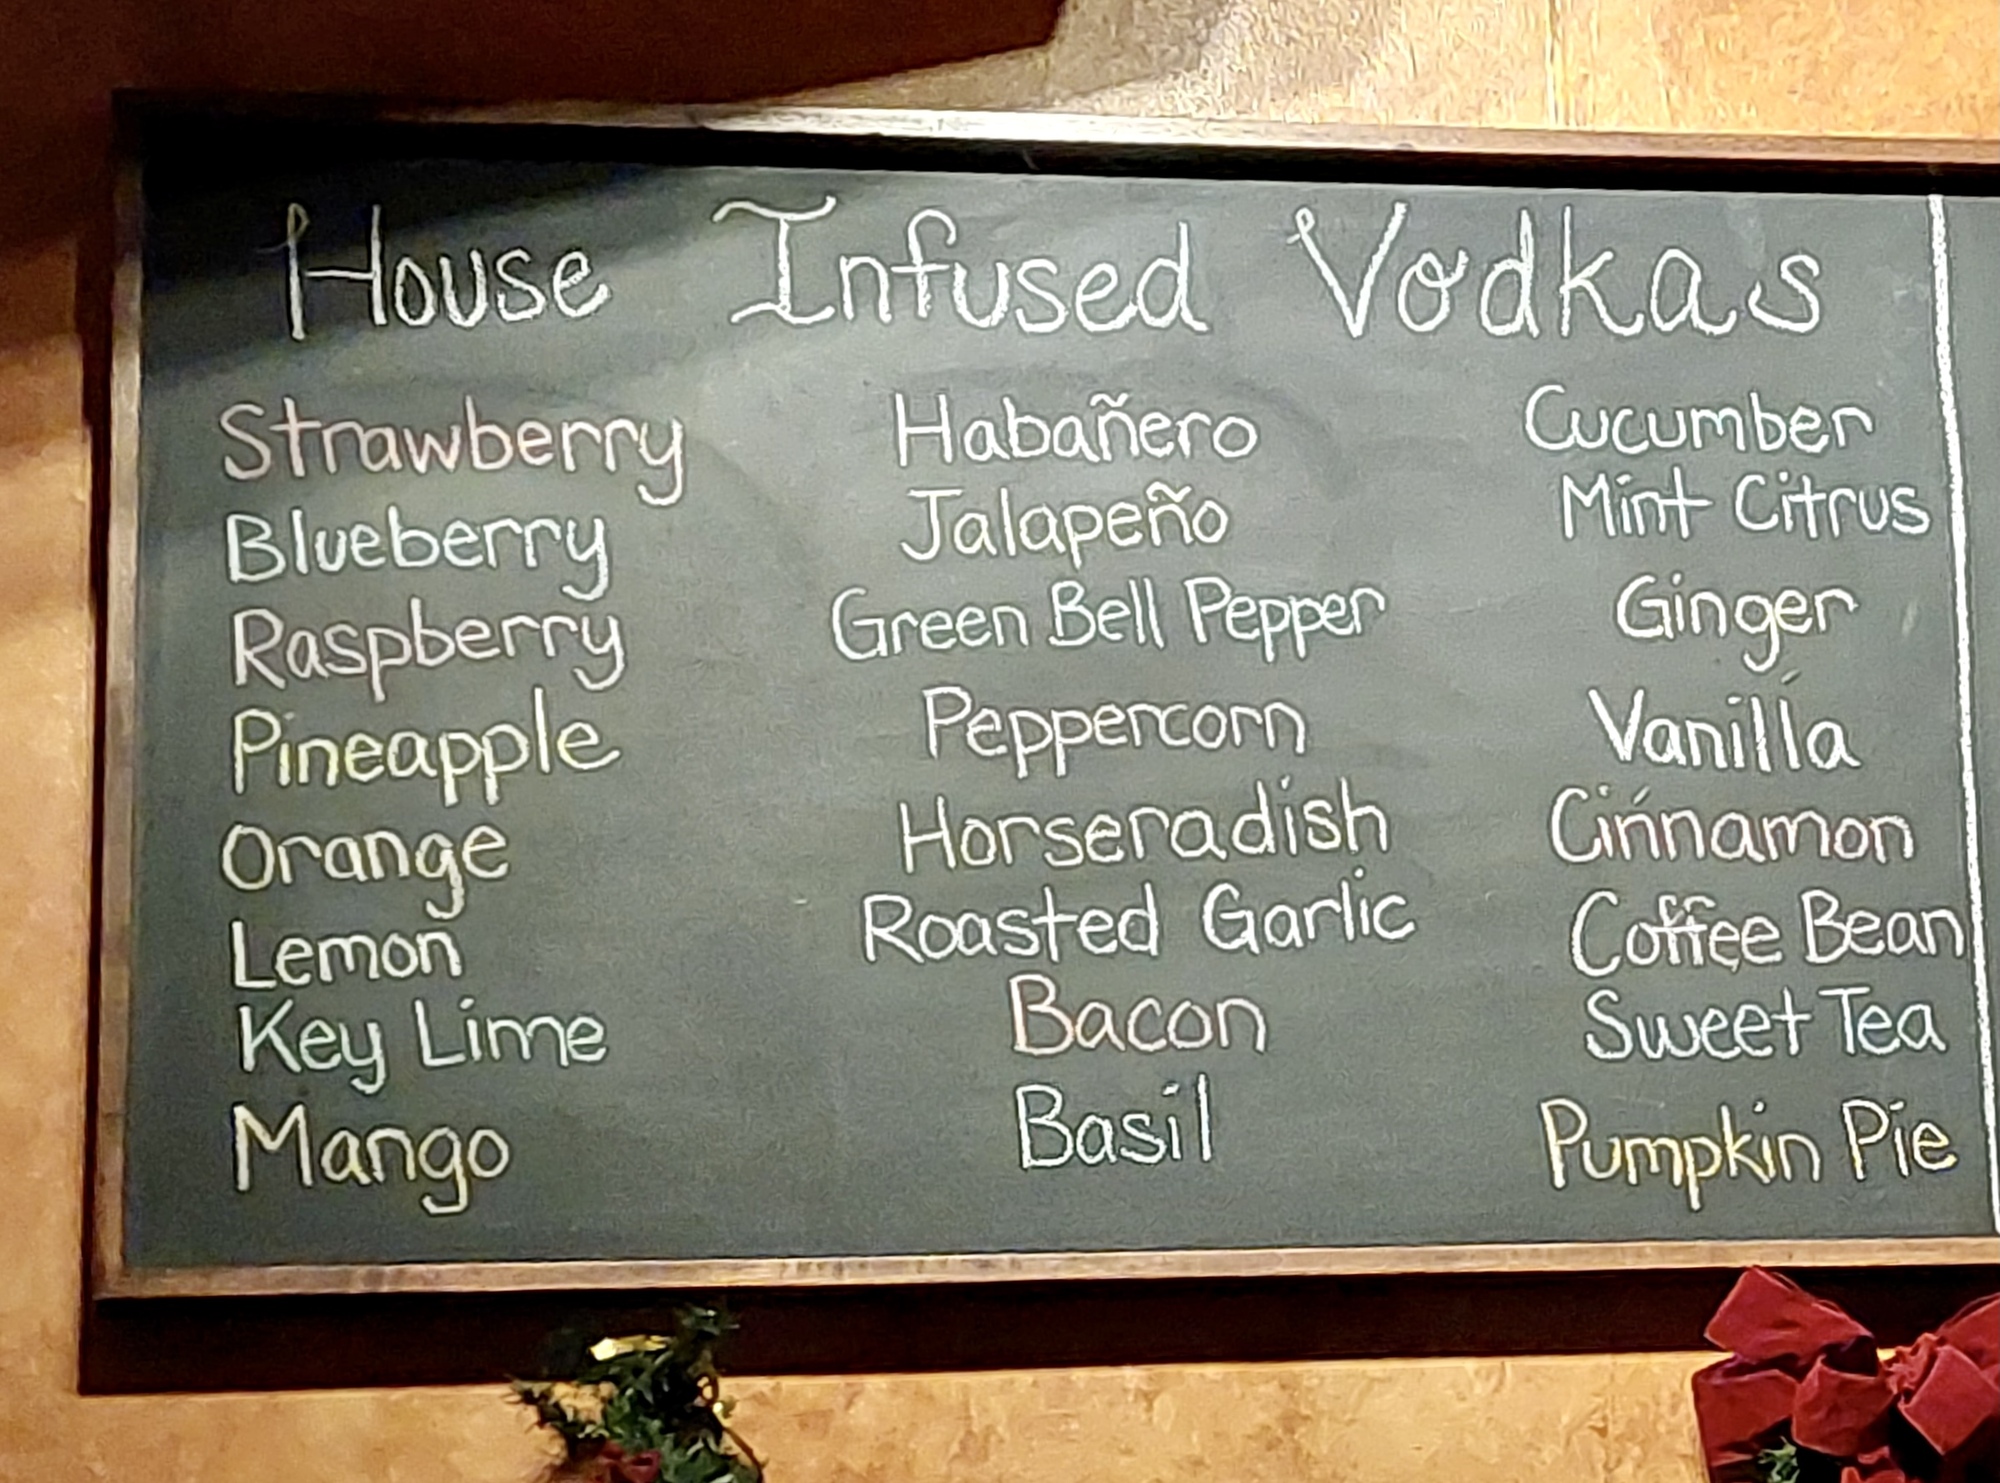 House Infused Vodkas
Strawberry
Blueberry
Raspberry
Pineapple
Orange
Lemon
Key Lime
Mango
Habañero
Jalapeño
Green Bell Pepper
Peppercorn
Horseradish
Roasted Garlic
Bacon
Basil
Cucumber
Mint Citrus
Ginger
Vanilla
Cinnamon
Coffee Bean
Sweet Tea
Pumpkin Pie